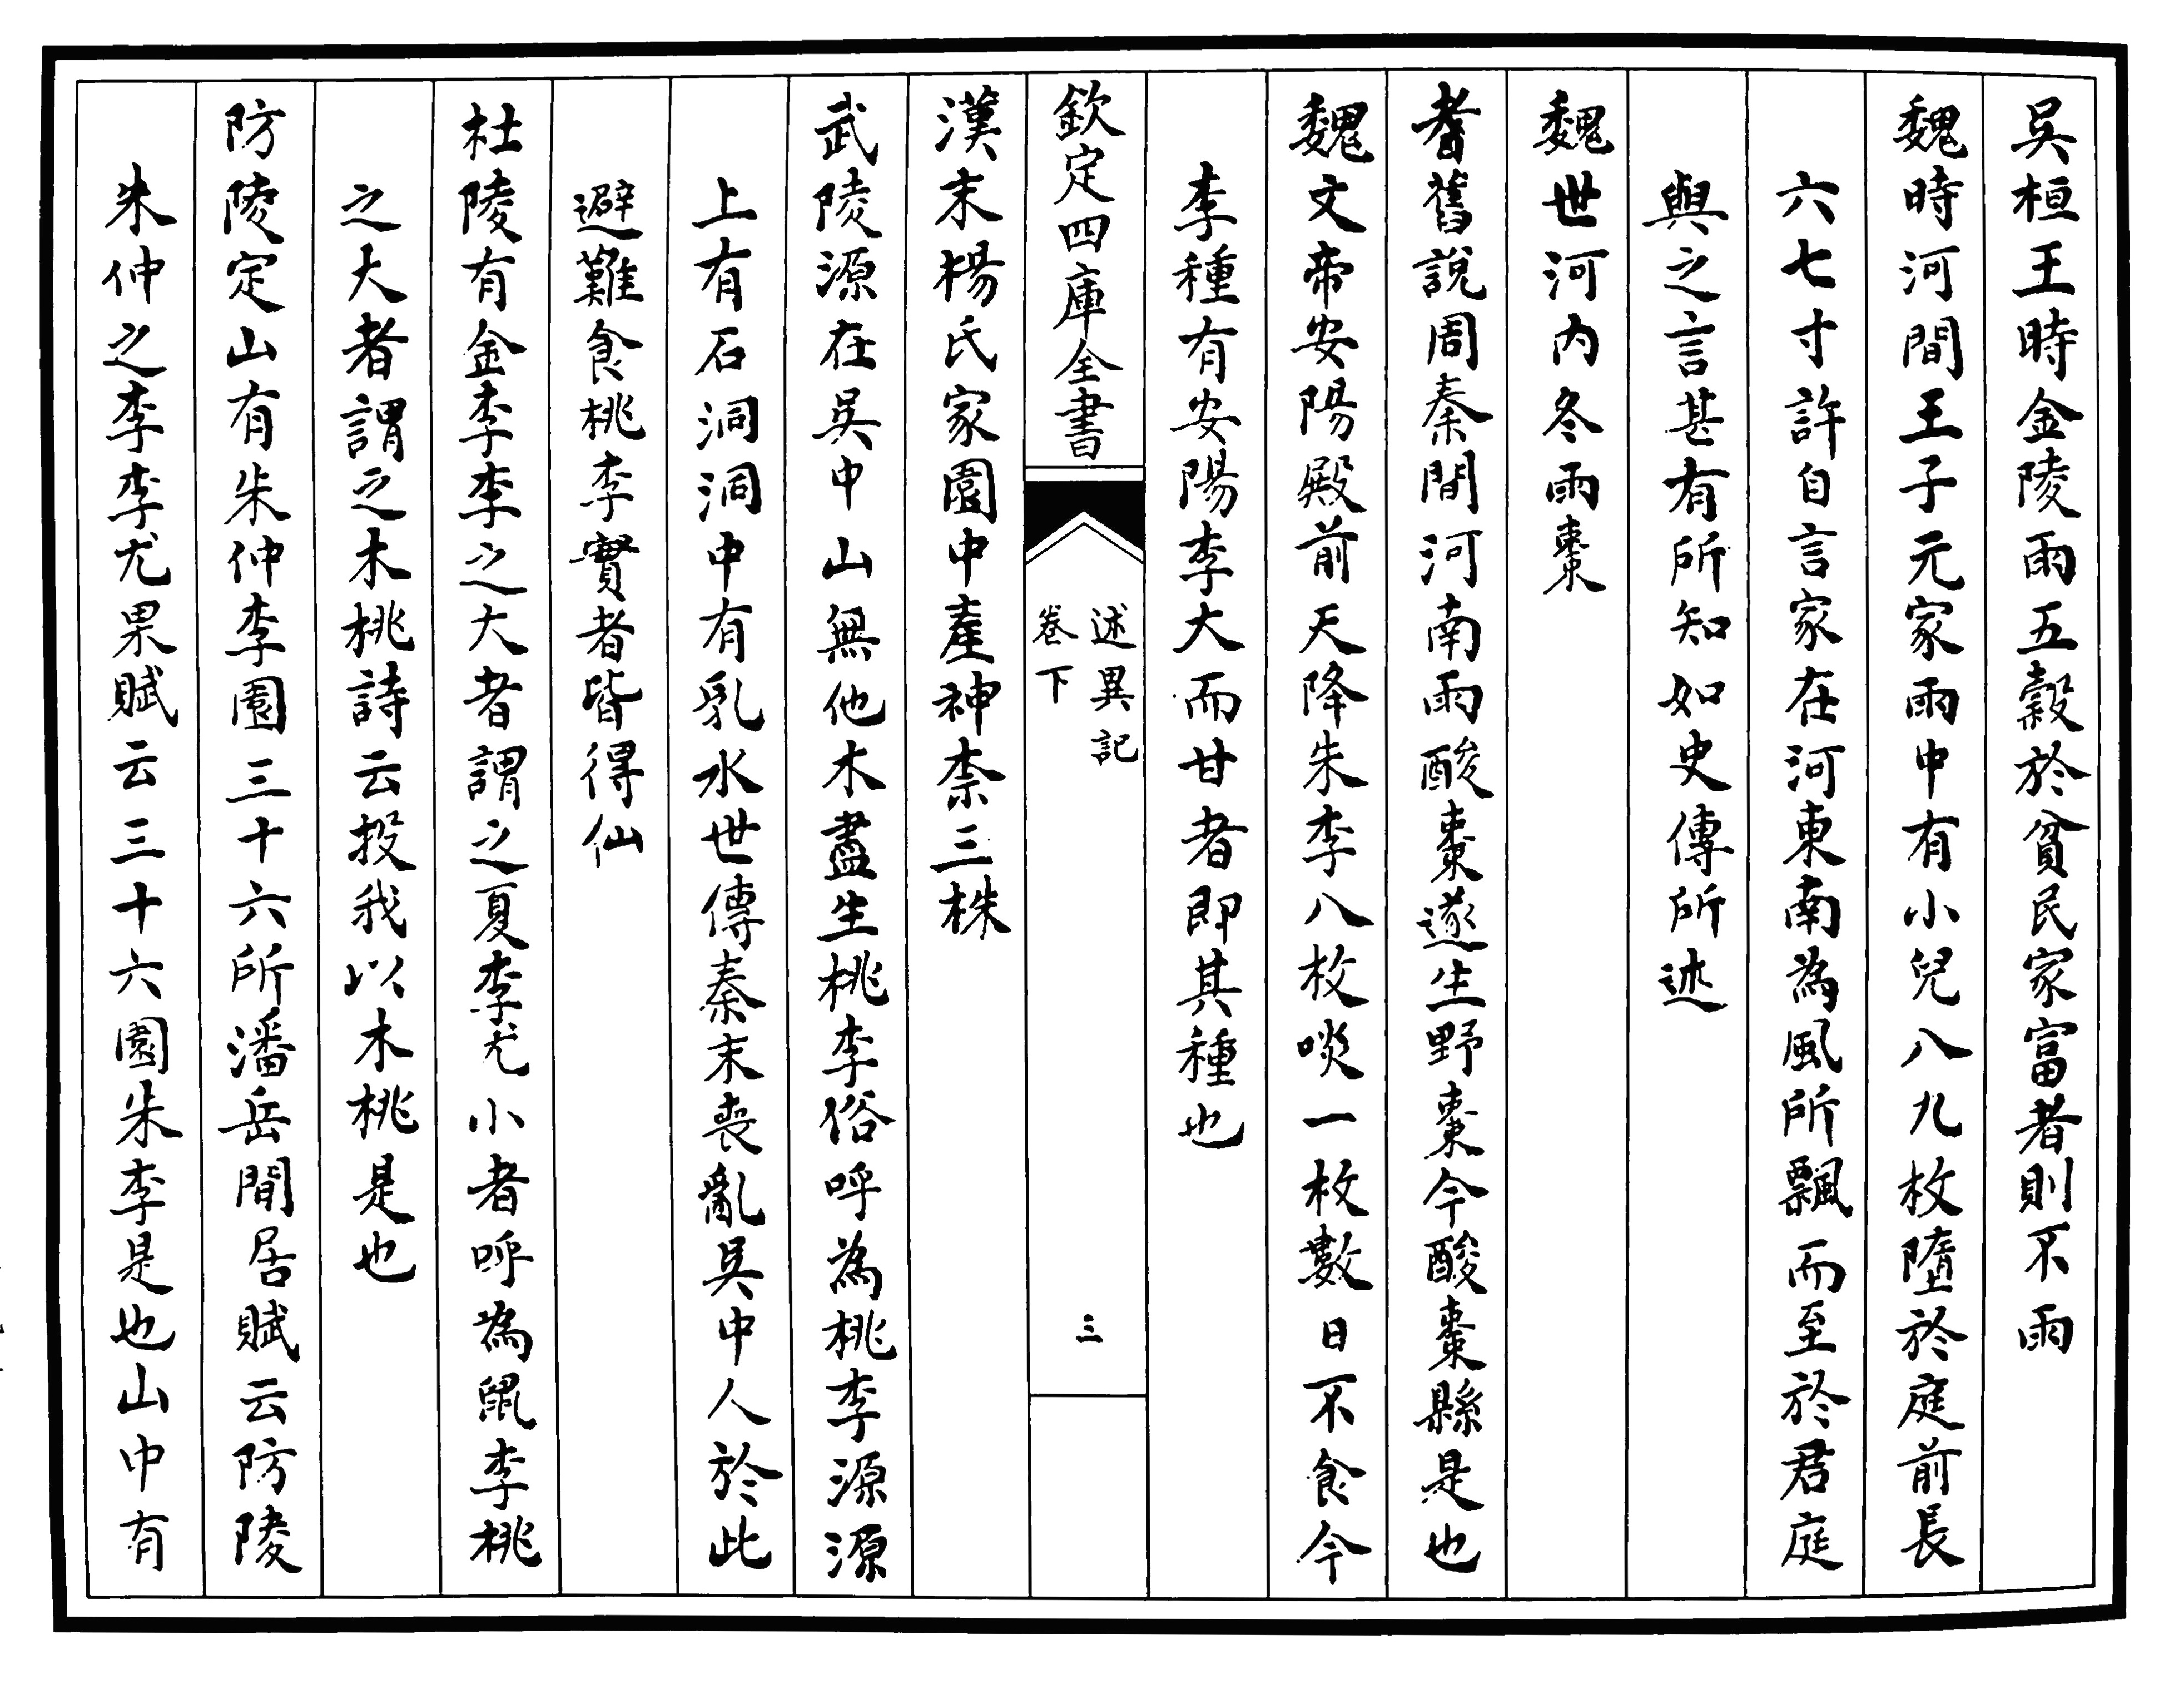 吳桓王時金陵雨五穀於貧民家富者則不雨
魏時河間王子元家雨中有小兒八九枚墮於庭前長
六七寸許自言家在河東南為風所飄而至於君庭
與之言甚有所知如史傳所述
魏世河内冬雨棗
耆舊說周秦間河南雨酸棗遂生野棗今酸棗縣是也
魏文帝安陽殿前天降朱李八枚啖一枚數日不食今
李種有安陽李大而甘者即其種也
欽定四庫全書
述異記
卷下
三
漢末楊氏家園中產神柰三株
武陵源在吳中山無他木盡生桃李俗呼為桃李源源
上有石洞洞中有乳水世傳秦末喪亂吳中人於此
避難食桃李實者皆得仙
杜陵有金李李之大者謂之夏李尤小者呼為鼠李桃
之大者謂之木桃詩云投我以木桃是也
防陵定山有朱仲李園三十六所潘岳閒居賦云防陵
朱仲之李李尤果賦云三十六園朱李是也山中有